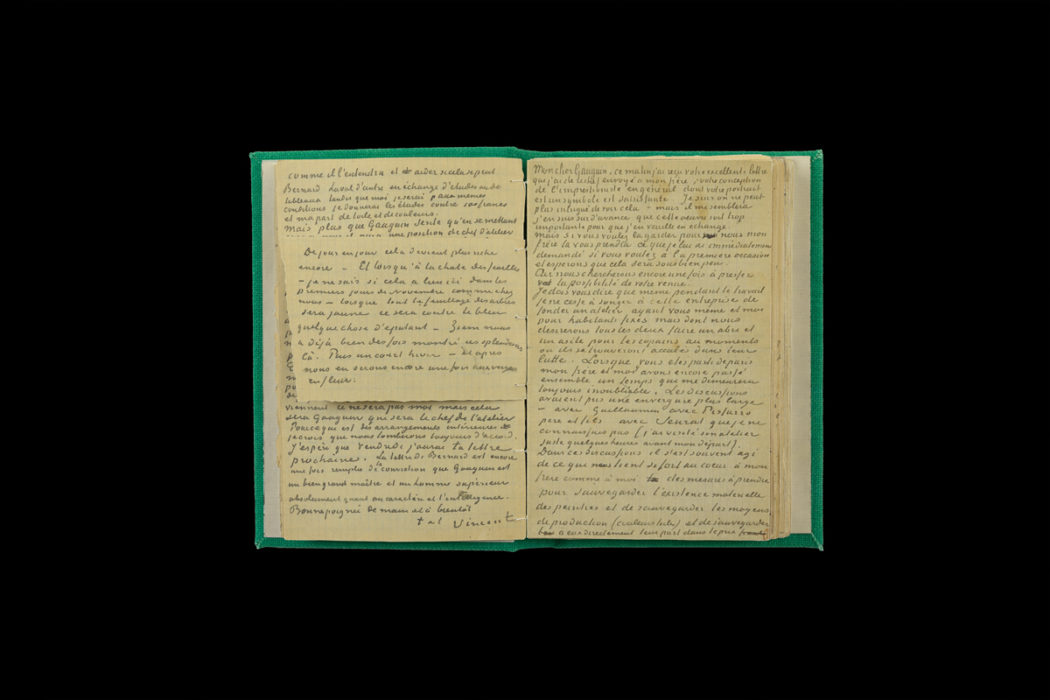 comme il l'entendra et aider si cela se peut
Bernard Laval d'autre en échange d'études ou de
tableaux tandis que moi je serai pas mêmes
conditions je donnerai les études contre 100 francs
et ma part de toile et de couleurs.
Mais plus que Gauguin sente qu'en se mettant
avec nous il aura une position de chef d'atelier
De jour en jour cela devient plus riche
encore – Et lorsqu'à la chute des feuilles
– je ne sais si cela a lieu ici dans les
premiers jours de Novembre comme chez
nous – lorsque tout le feuillage des arbres
sera jaune ce sera contre le bleu
quelque chose d'épatant – Ziem nous
a déjà bien des fois montré ces splendeurs
là. Puis un court hiver – et après
nous en serons encore une fois aux vergers
en fleur.
viennent ce ne sera pas moi mais cela
sera Gauguin qui sera le chef de l'atelier
Pour ce qui est des arrangements intérieurs
je crois que nous tomberons toujours d'accord.
J'espère que Vendredi j'aurai ta lettre
prochaine. La lettre de Bernard est encore
une fois remplie de la conviction que Gauguin est
un bien grand maître et un homme supérieur
absolument quant au caractère et l'intelligence.
Bonne poignée de main et à bientôt
t. à t. Vincent
Mon cher Gauguin, ce matin j'ai reçu votre excellente lettre
que j'ai de reste envoyé à mon frère; votre conception
de l'impressioniste en général dont votre portrait
est un symbole est saisissante. Je suis on ne peut
plus intrigué de voir cela – mais il me semblera
j'en suis sûr d'avance que cette oeuvre soit trop
importante pour que j'en veuille en échange
Mais si vous voulez la garder pour nous mon
frère la vous prendra ce que je lui ai immédiatement
demandé si vous voulez à la première occasion
et espérons que cela sera sous bien peu.
Car nous chercherons encore une fois à presser
la possibilité de votre venue.
Je dois vous dire que même pendant le travail
je ne cesse à songer à cette entreprise de
fonder un atelier ayant vous même et moi
pour habitants fixes mais dont nous
desirerons tous les deux faire un abri et
un asile pour les copains au moments
où ils se trouveront acculés dans leur
lutte. Lorsque vous etes parti de Paris
mon frère et moi avons encore passé
ensemble un temps qui me demeurera
toujours inoubliable. Les discussions
avaient pris une envergure plus large
– avec Guillaumin avec Pissarro
père et fils avec Seurat que je ne
connaissais pas (j'ai visité son atelier
juste quelques heures avant mon départ).
Dans ces discussions il s'est souvent agi
de ce qui nous tient si fort au coeur à mon
frère comme à moi des mesures à prendre
pour sauvegarder l'existence matérielle
des peintres et de sauvegarder les moyens
de production (couleurs toiles) et de sauvegarder
à eux directement leur part dans le prix